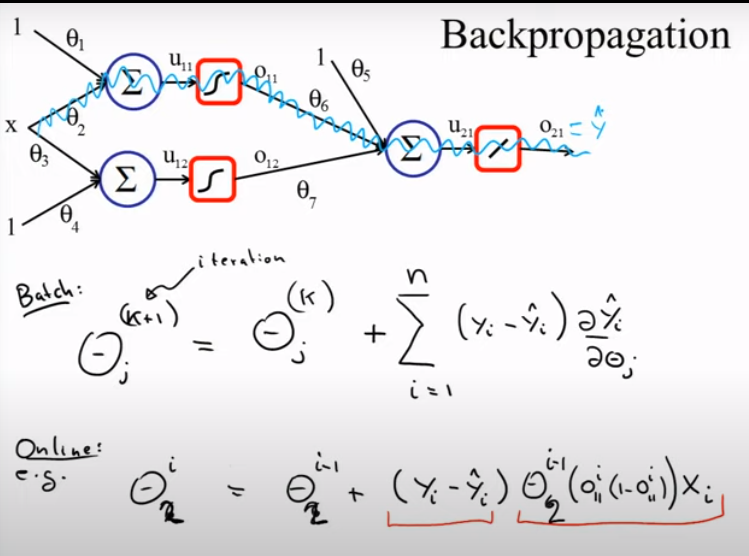 Backpropagation
1 θ₁ u₁₁ o₁₁ 1 θ₅
Σ θ₆
x θ₂ u₂₁ o₂₁ = ŷ
θ₃ Σ
u₁₂ o₁₂
Σ θ₇
1 θ₄
iteration
Batch:
θⱼ^(k+1) = θⱼ^(k) + Σ_{i=1}^{n} (yᵢ - ŷᵢ) ∂ŷᵢ/∂θⱼ
Online:
e.g. θ₂^i = θ₂^{i-1} + (yᵢ - ŷᵢ) θ₂^{i-1} (o₁₁^i (1-o₁₁^i)) xᵢ